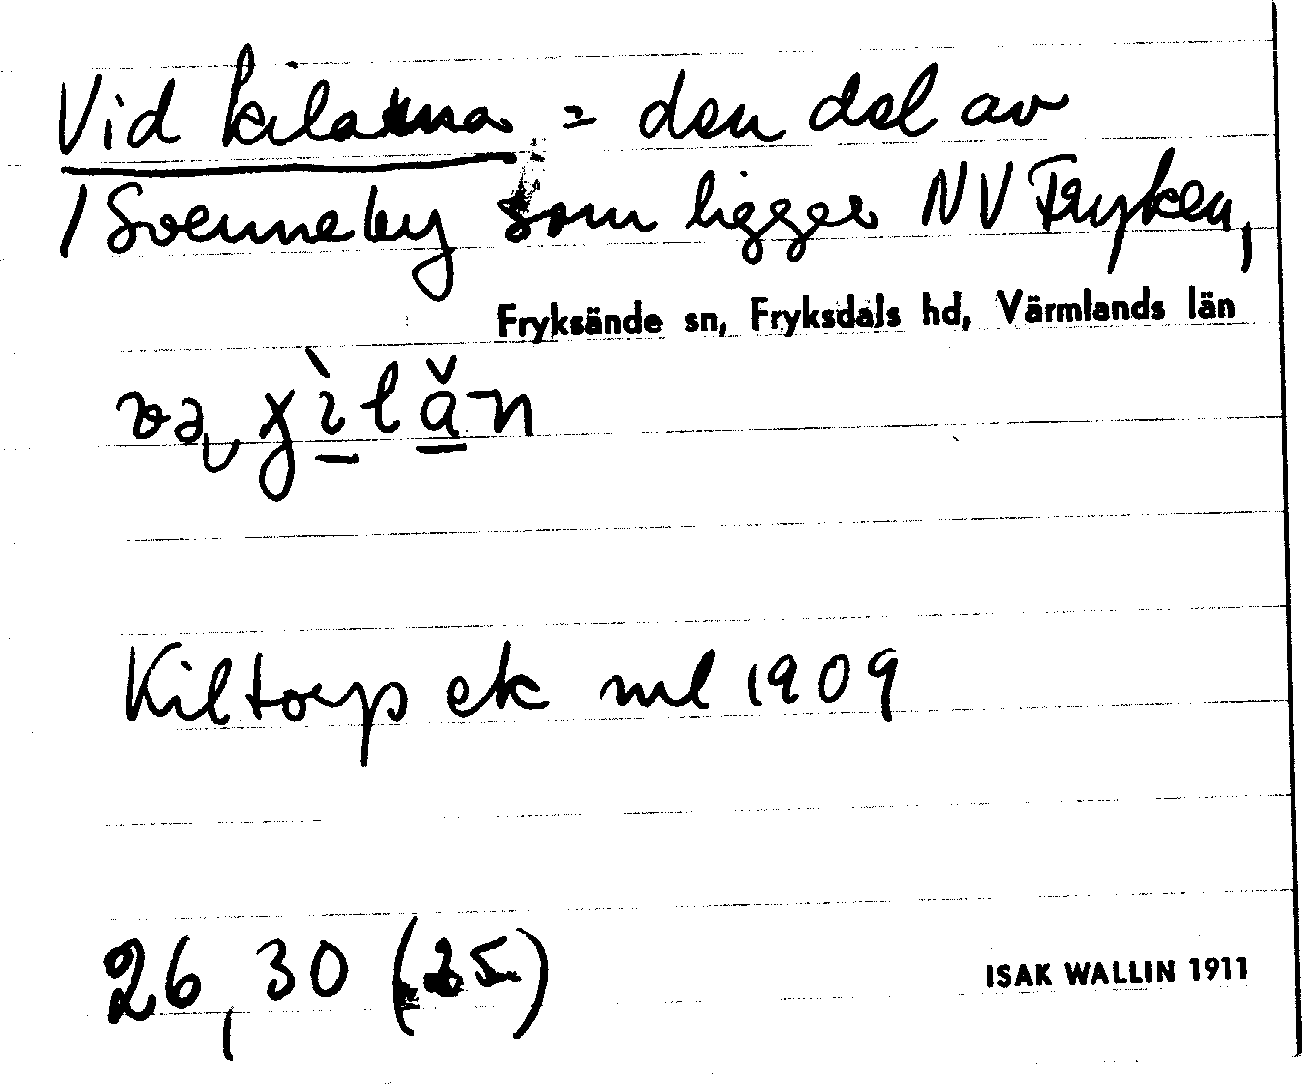 Vid kilarna = den del av
/Svenneby som ligger NV Fryken,
Fryksände sn, Fryksdals hd, Värmlands län
Kiltorp ek ml 1909
26, 30 (25)
ISAK WALLIN 1911